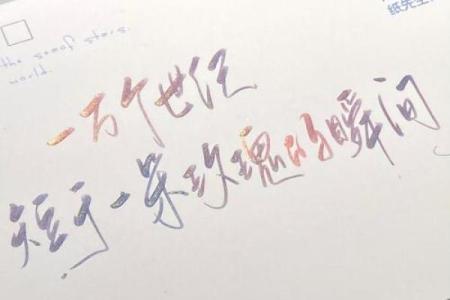 纸先生
the sea of stars.
world.
一万个世纪
短于一朵玫瑰的瞬间